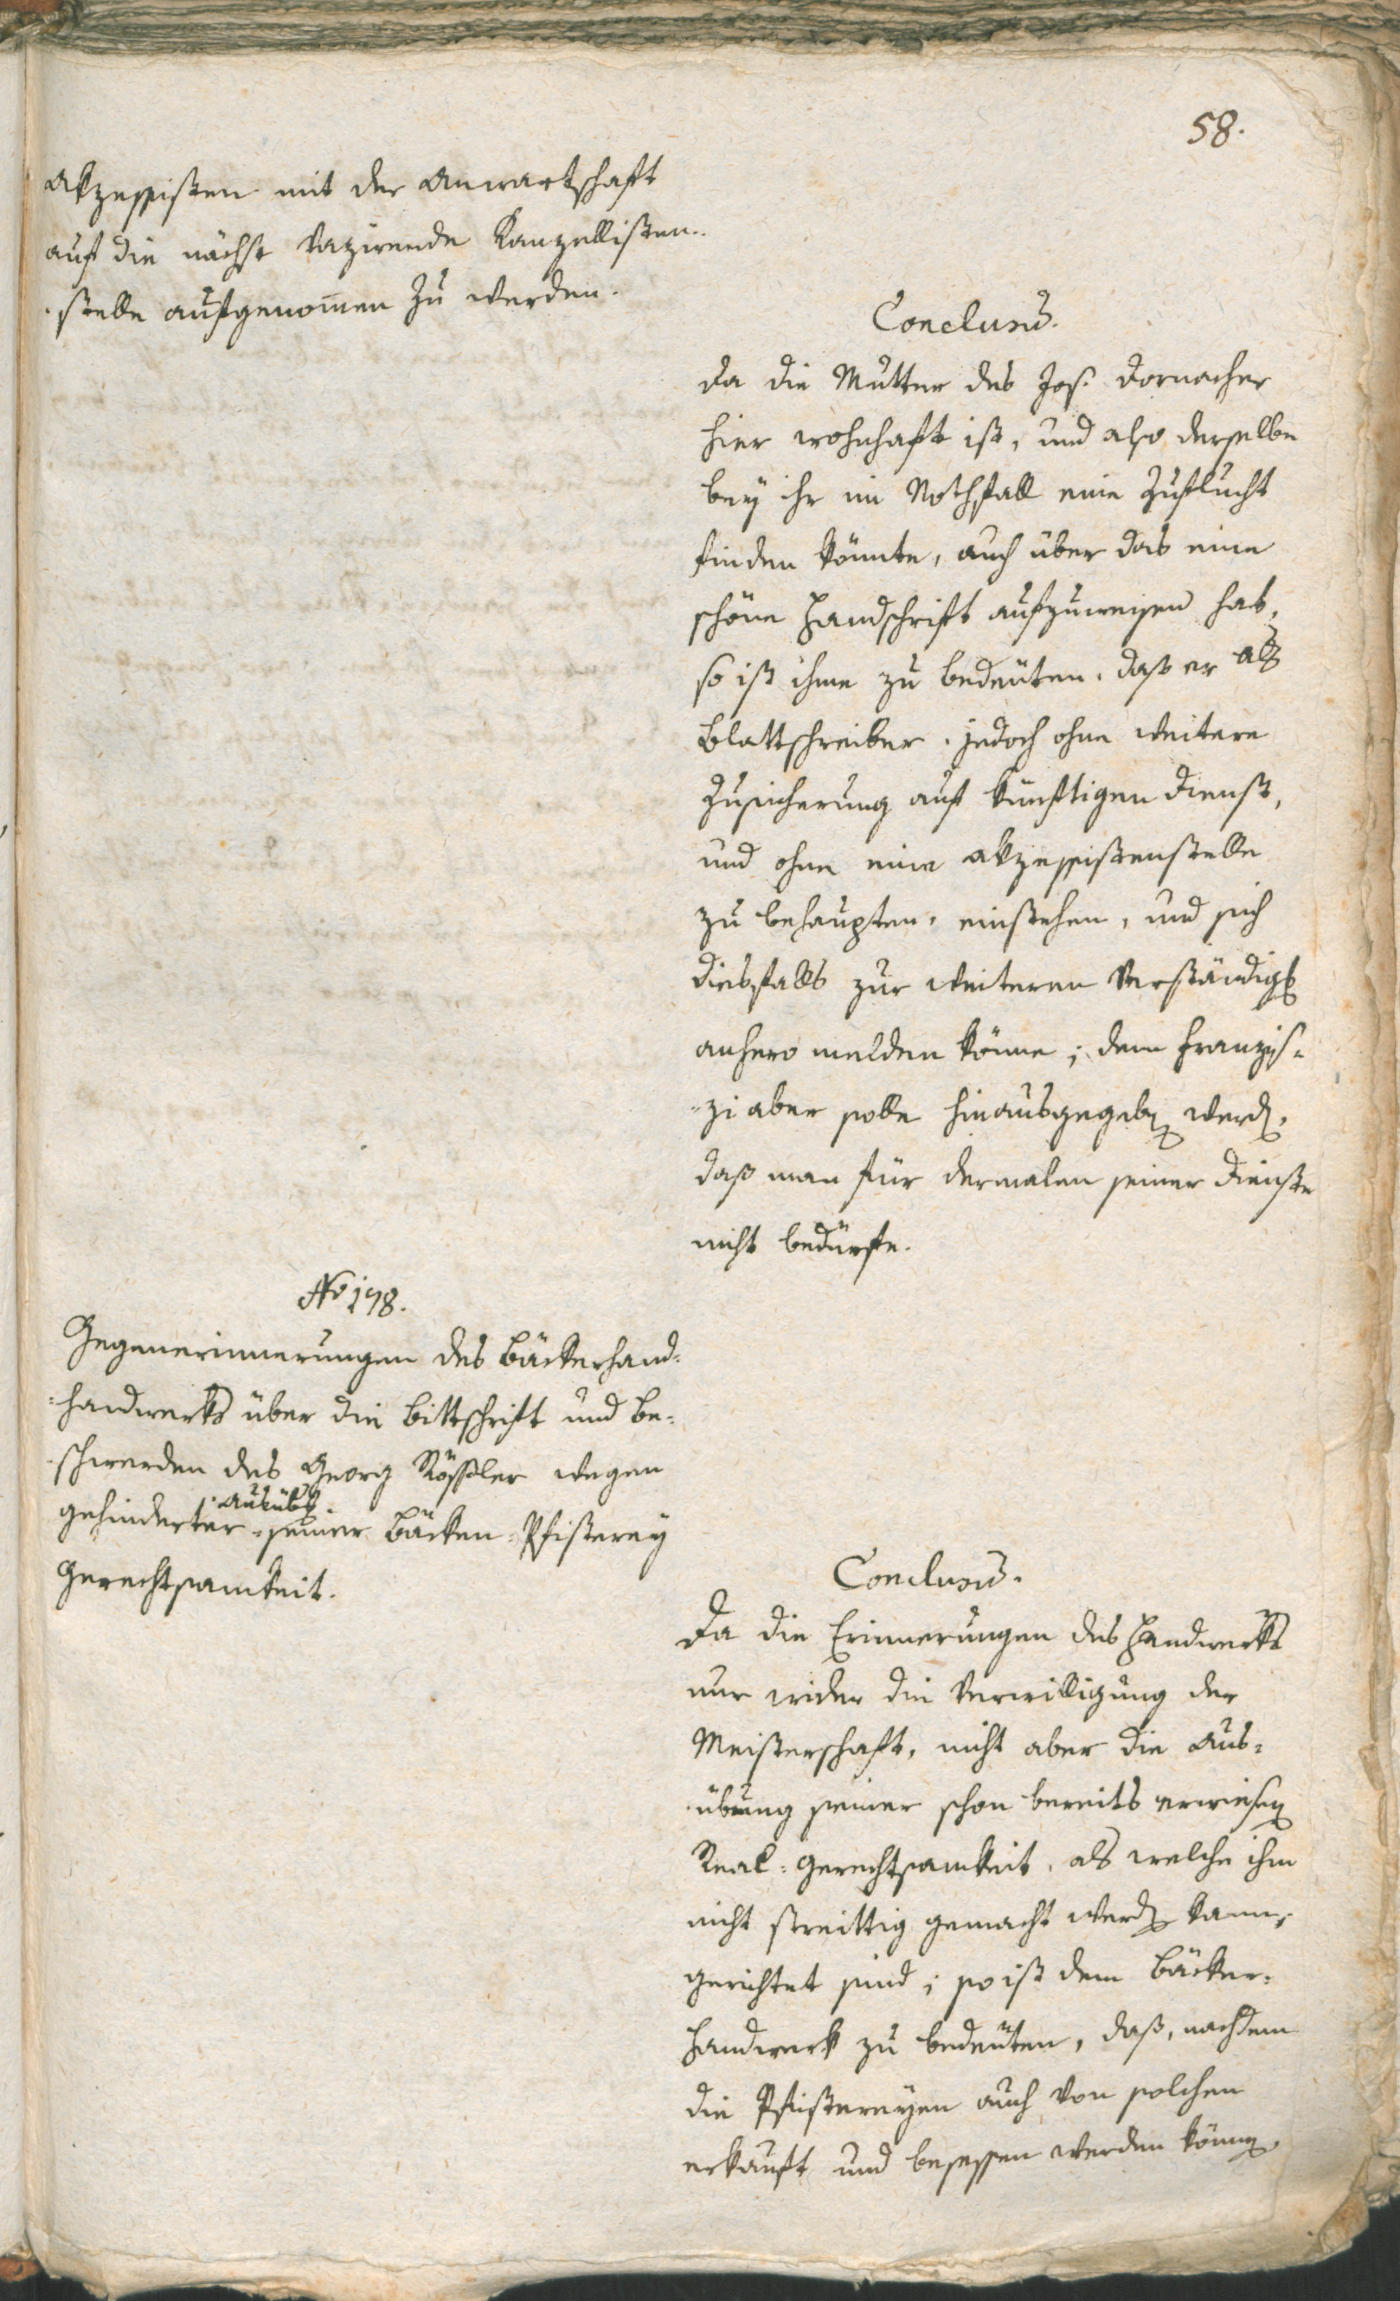 58.
Akzessisten mit der Anwartschaft
auf die nächst vazirende Kanzellisten-
stelle aufgenom̄en zu werden.
Conclusū.
Da die Mutter des Jos. Dornacher
hier wohnhaft ist, und also derselbe
bey ihr im Nothfall eine Zuflucht
finden könnte, auch über das eine
schöne Handschrift aufzuweisen hab,
so ist ihme zu bedeuten, daß er als
Blattschreiber, jedoch ohne weitere
Zusicherung auf künftigen Dienst,
und ohne eine Akzessistenstelle
zu behaupten, einstehen, und sich
diesfalls zur weiteren Verständig
anhero melden könne; dem Franzis-
-zi aber solle hinausgegeb werd,
daß man für dermalen seiner Dienste
nicht bedürfte.
No 198.
Gegenerinnerungen des Bäckerhand-
-handwerks über die Bittschrift und Be-
schwerden des Georg Rößler wegen
Ausüb
gehinderter seiner Bäcken-Pfisterey
Gerechtsamkeit.
Conclusū.
Da die Erinnerungen des Handwerks
nur wider die Verwilligung der
Meisterschaft, nicht aber die Aus-
übung seiner schon bereits erwiesen
Real-Gerechtsamkeit, als welche ihm
nicht streittig gemacht werd kann,
gerichtet sind; so ist dem Bäcker-
Handwerk zu bedeuten, daß, nachdem
die Pfistereyen auch von solchen
erkauft und besessen werden könen,